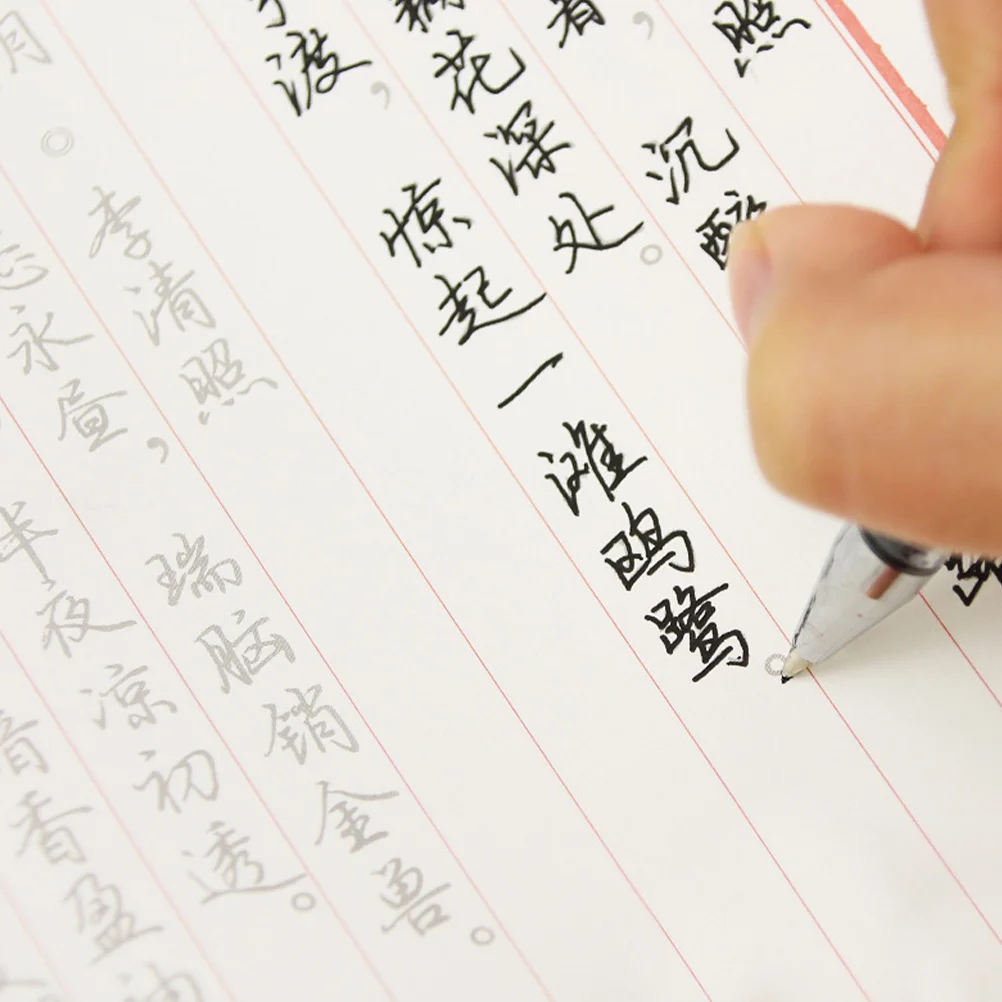 照
，沉醉
藕花深处。
渡，惊起一滩鸥鹭。
月。李清照
永昼，瑞脑销金兽。
半夜凉初透。
暗香盈袖